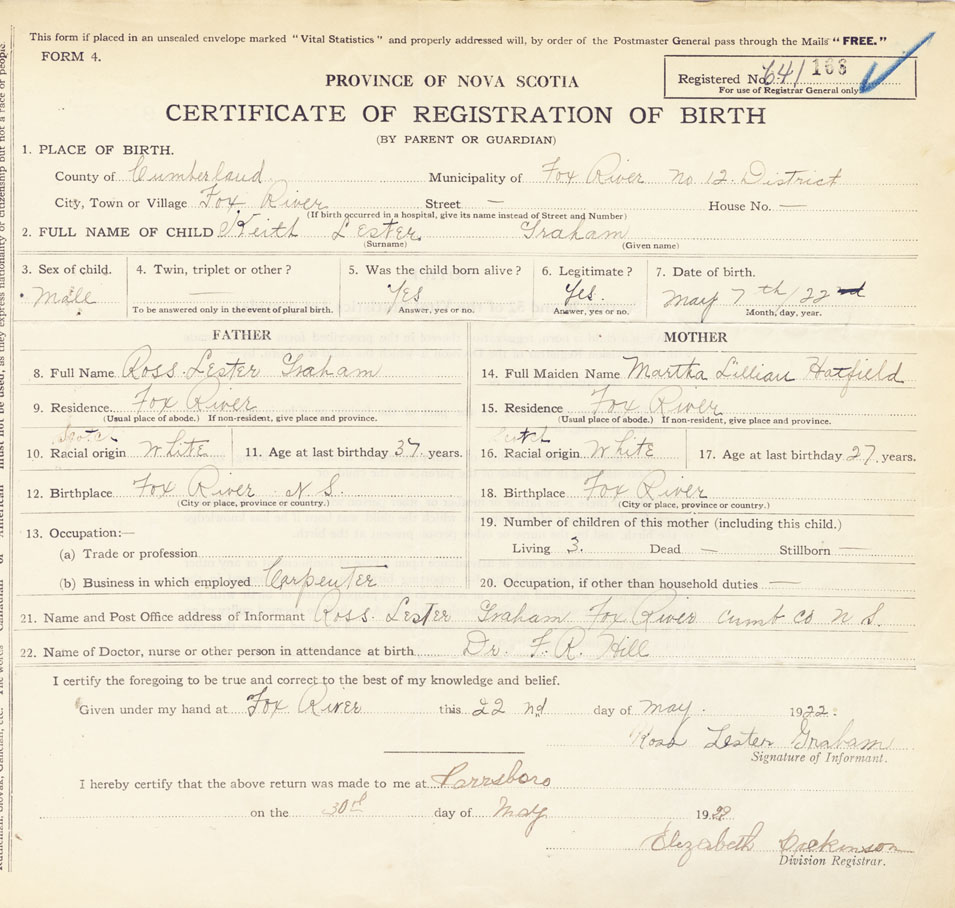 This form if placed in an unsealed envelope marked "Vital Statistics" and properly addressed will, by order of the Postmaster General pass through the Mails "FREE."
FORM 4.
PROVINCE OF NOVA SCOTIA
Registered No. 641 168
For use of Registrar General only
CERTIFICATE OF REGISTRATION OF BIRTH
(BY PARENT OR GUARDIAN)
1. PLACE OF BIRTH.
County of Cumberland Municipality of Fox River no 12. District
City, Town or Village Fox River Street — House No. —
(If birth occurred in a hospital, give its name instead of Street and Number)
2. FULL NAME OF CHILD Keith Lester Graham
(Surname) (Given name)
3. Sex of child. 4. Twin, triplet or other? 5. Was the child born alive? 6. Legitimate? 7. Date of birth.
Male — Yes Yes. May 7th/22nd
To be answered only in the event of plural birth. Answer, yes or no. Answer, yes or no. Month, day, year.
FATHER MOTHER
8. Full Name Ross Lester Graham 14. Full Maiden Name Martha Lillian Hatfield
9. Residence Fox River 15. Residence Fox River
(Usual place of abode.) If non-resident, give place and province. (Usual place of abode.) If non-resident, give place and province.
Scotch
10. Racial origin White 11. Age at last birthday 37 years. 16. Racial origin White 17. Age at last birthday 27 years.
12. Birthplace Fox River N.S. 18. Birthplace Fox River
(City or place, province or country.) (City or place, province or country.)
13. Occupation:— 19. Number of children of this mother (including this child.)
(a) Trade or profession Living 3. Dead — Stillborn —
(b) Business in which employed Carpenter 20. Occupation, if other than household duties —
21. Name and Post Office address of Informant Ross. Lester Graham Fox River Cumb co N S.
22. Name of Doctor, nurse or other person in attendance at birth Dr. F. R. Hill
I certify the foregoing to be true and correct to the best of my knowledge and belief.
Given under my hand at Fox River this 22 nd day of May. 1922.
Ross Lester Graham
Signature of Informant.
I hereby certify that the above return was made to me at Parrsboro
on the 30th day of May 1922
Elizabeth Dickinson
Division Registrar.